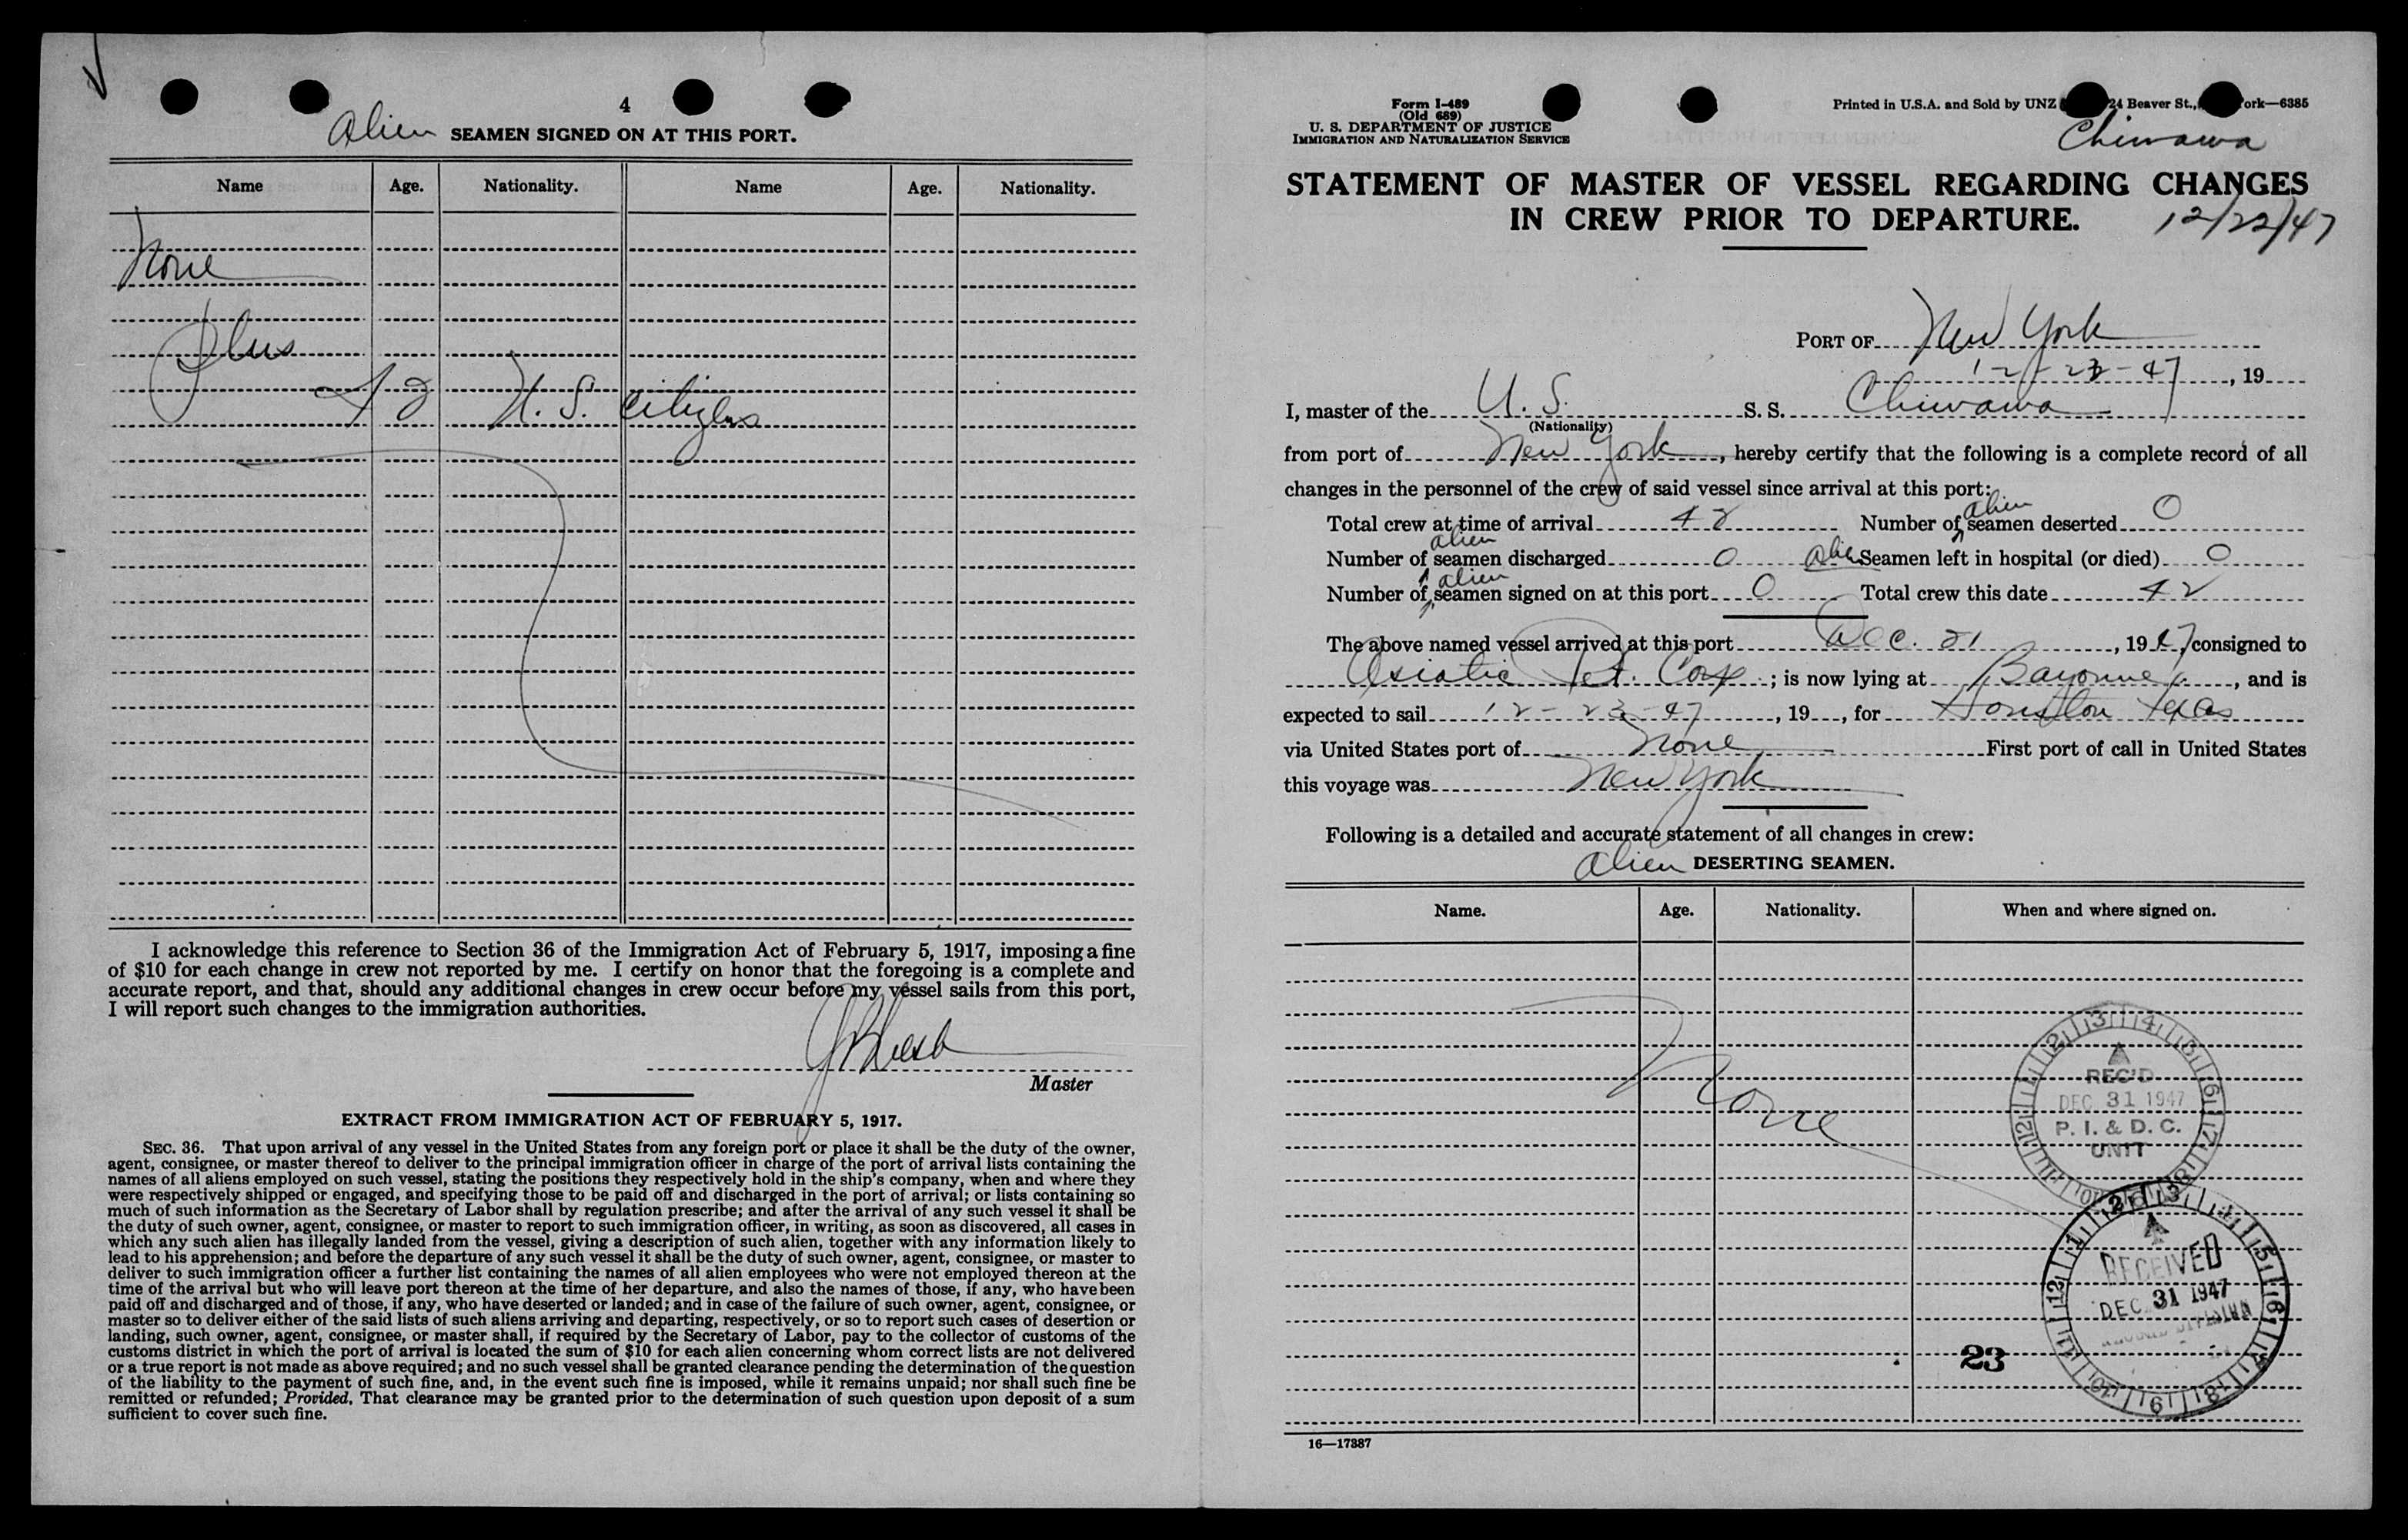 4
Alien SEAMEN SIGNED ON AT THIS PORT.
Name Age. Nationality. Name Age. Nationality.
None
Plus
42 U.S. citizens
I acknowledge this reference to Section 36 of the Immigration Act of February 5, 1917, imposing a fine
of $10 for each change in crew not reported by me. I certify on honor that the foregoing is a complete and
accurate report, and that, should any additional changes in crew occur before my vessel sails from this port,
I will report such changes to the immigration authorities.
Master
EXTRACT FROM IMMIGRATION ACT OF FEBRUARY 5, 1917.
SEC. 36. That upon arrival of any vessel in the United States from any foreign port or place it shall be the duty of the owner,
agent, consignee, or master thereof to deliver to the principal immigration officer in charge of the port of arrival lists containing the
names of all aliens employed on such vessel, stating the positions they respectively hold in the ship's company, when and where they
were respectively shipped or engaged, and specifying those to be paid off and discharged in the port of arrival; or lists containing so
much of such information as the Secretary of Labor shall by regulation prescribe; and after the arrival of any such vessel it shall be
the duty of such owner, agent, consignee, or master to report to such immigration officer, in writing, as soon as discovered, all cases in
which any such alien has illegally landed from the vessel, giving a description of such alien, together with any information likely to
lead to his apprehension; and before the departure of any such vessel it shall be the duty of such owner, agent, consignee, or master to
deliver to such immigration officer a further list containing the names of all alien employees who were not employed thereon at the
time of the arrival but who will leave port thereon at the time of her departure, and also the names of those, if any, who have been
paid off and discharged and of those, if any, who have deserted or landed; and in case of the failure of such owner, agent, consignee, or
master so to deliver either of the said lists of such aliens arriving and departing, respectively, or so to report such cases of desertion or
landing, such owner, agent, consignee, or master shall, if required by the Secretary of Labor, pay to the collector of customs of the
customs district in which the port of arrival is located the sum of $10 for each alien concerning whom correct lists are not delivered
or a true report is not made as above required; and no such vessel shall be granted clearance pending the determination of the question
of the liability to the payment of such fine, and, in the event such fine is imposed, while it remains unpaid; nor shall such fine be
remitted or refunded; Provided, That clearance may be granted prior to the determination of such question upon deposit of a sum
sufficient to cover such fine.
Form I-489
(Old 689)
U. S. DEPARTMENT OF JUSTICE
IMMIGRATION AND NATURALIZATION SERVICE
Printed in U.S.A. and Sold by UNZ 24 Beaver St., ork—6385
Chiwawa
STATEMENT OF MASTER OF VESSEL REGARDING CHANGES
IN CREW PRIOR TO DEPARTURE.
12/22/47
PORT OF New York
12-23-47, 19
I, master of the U.S. S. S. Chiwawa
(Nationality)
from port of New York, hereby certify that the following is a complete record of all
changes in the personnel of the crew of said vessel since arrival at this port:
Total crew at time of arrival 42 Number of alien seamen deserted 0
Number of alien seamen discharged 0 alien Seamen left in hospital (or died) 0
Number of alien seamen signed on at this port 0 Total crew this date 42
The above named vessel arrived at this port Dec. 21, 1947, consigned to
Asiatic Pet. Corp; is now lying at Bayonne, and is
expected to sail 12-23-47, 19, for Houston Texas
via United States port of None First port of call in United States
this voyage was New York
Following is a detailed and accurate statement of all changes in crew:
Alien DESERTING SEAMEN.
Name. Age. Nationality. When and where signed on.
None
REC'D
DEC 31 1947
P. I. & D. C.
UNIT
RECEIVED
DEC 31 1947
23
16—17387